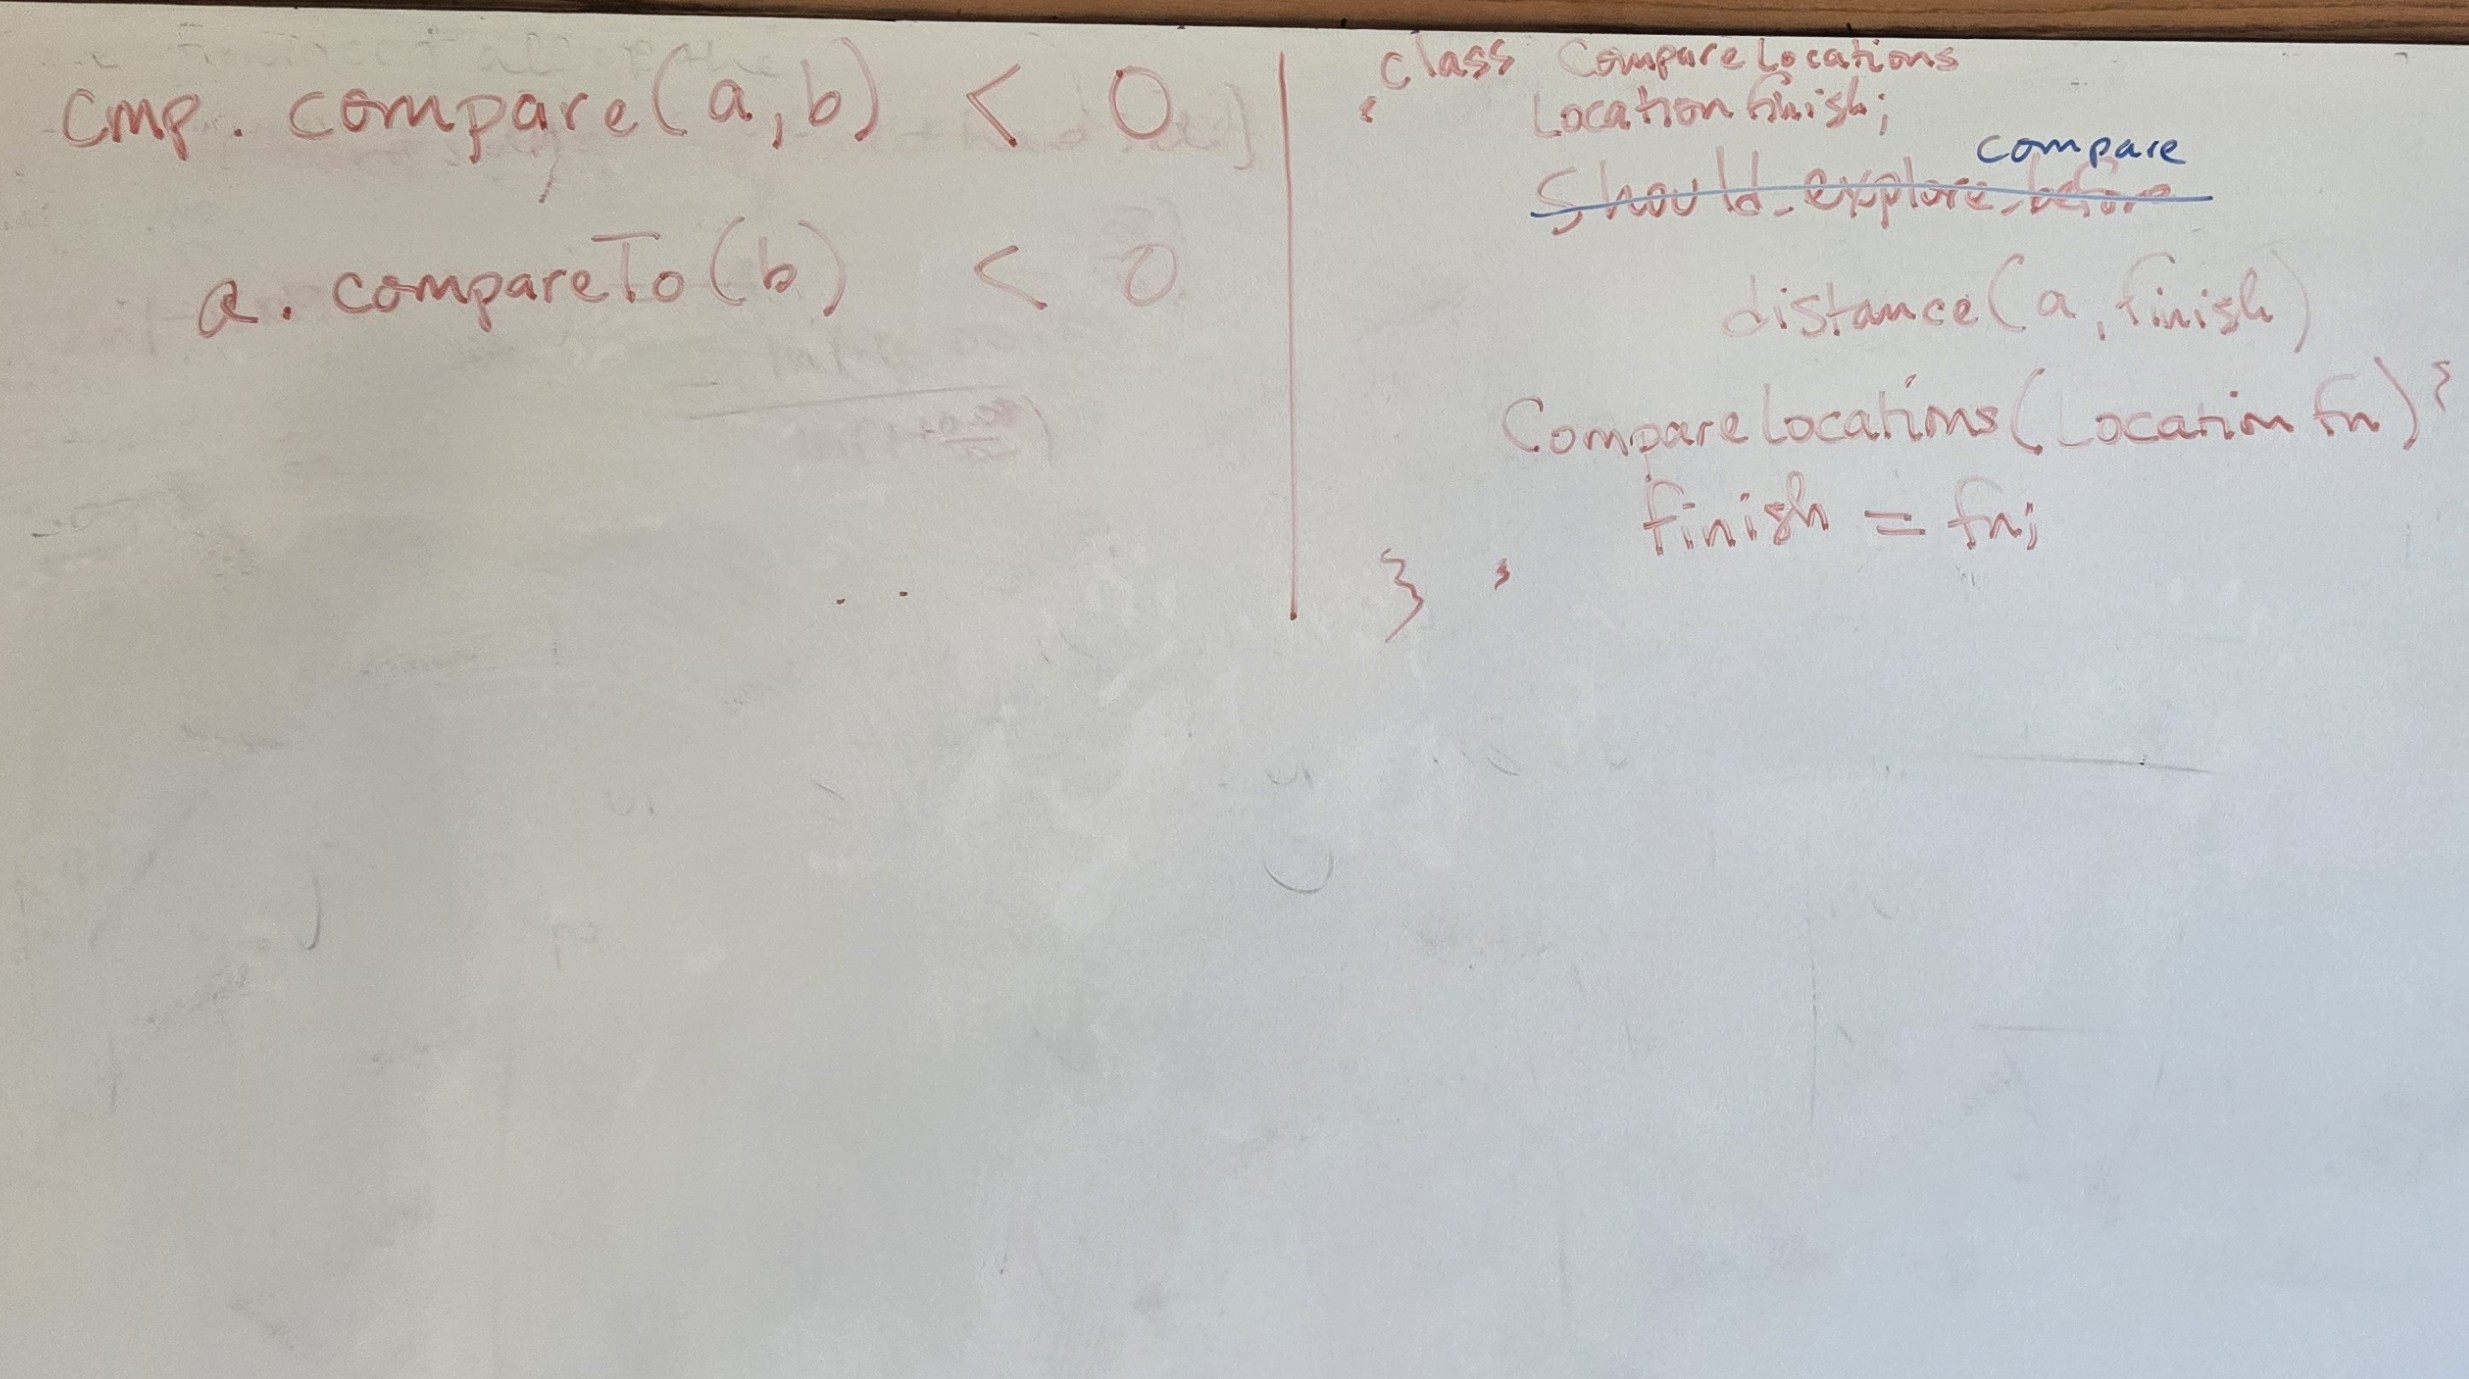 cmp. compare(a,b) < 0
a. compareTo(b) < 0
class CompareLocations
{ Location finish;
compare
Should_explore_before
distance(a, finish)
CompareLocations(Location fn) {
finish = fn;
} }